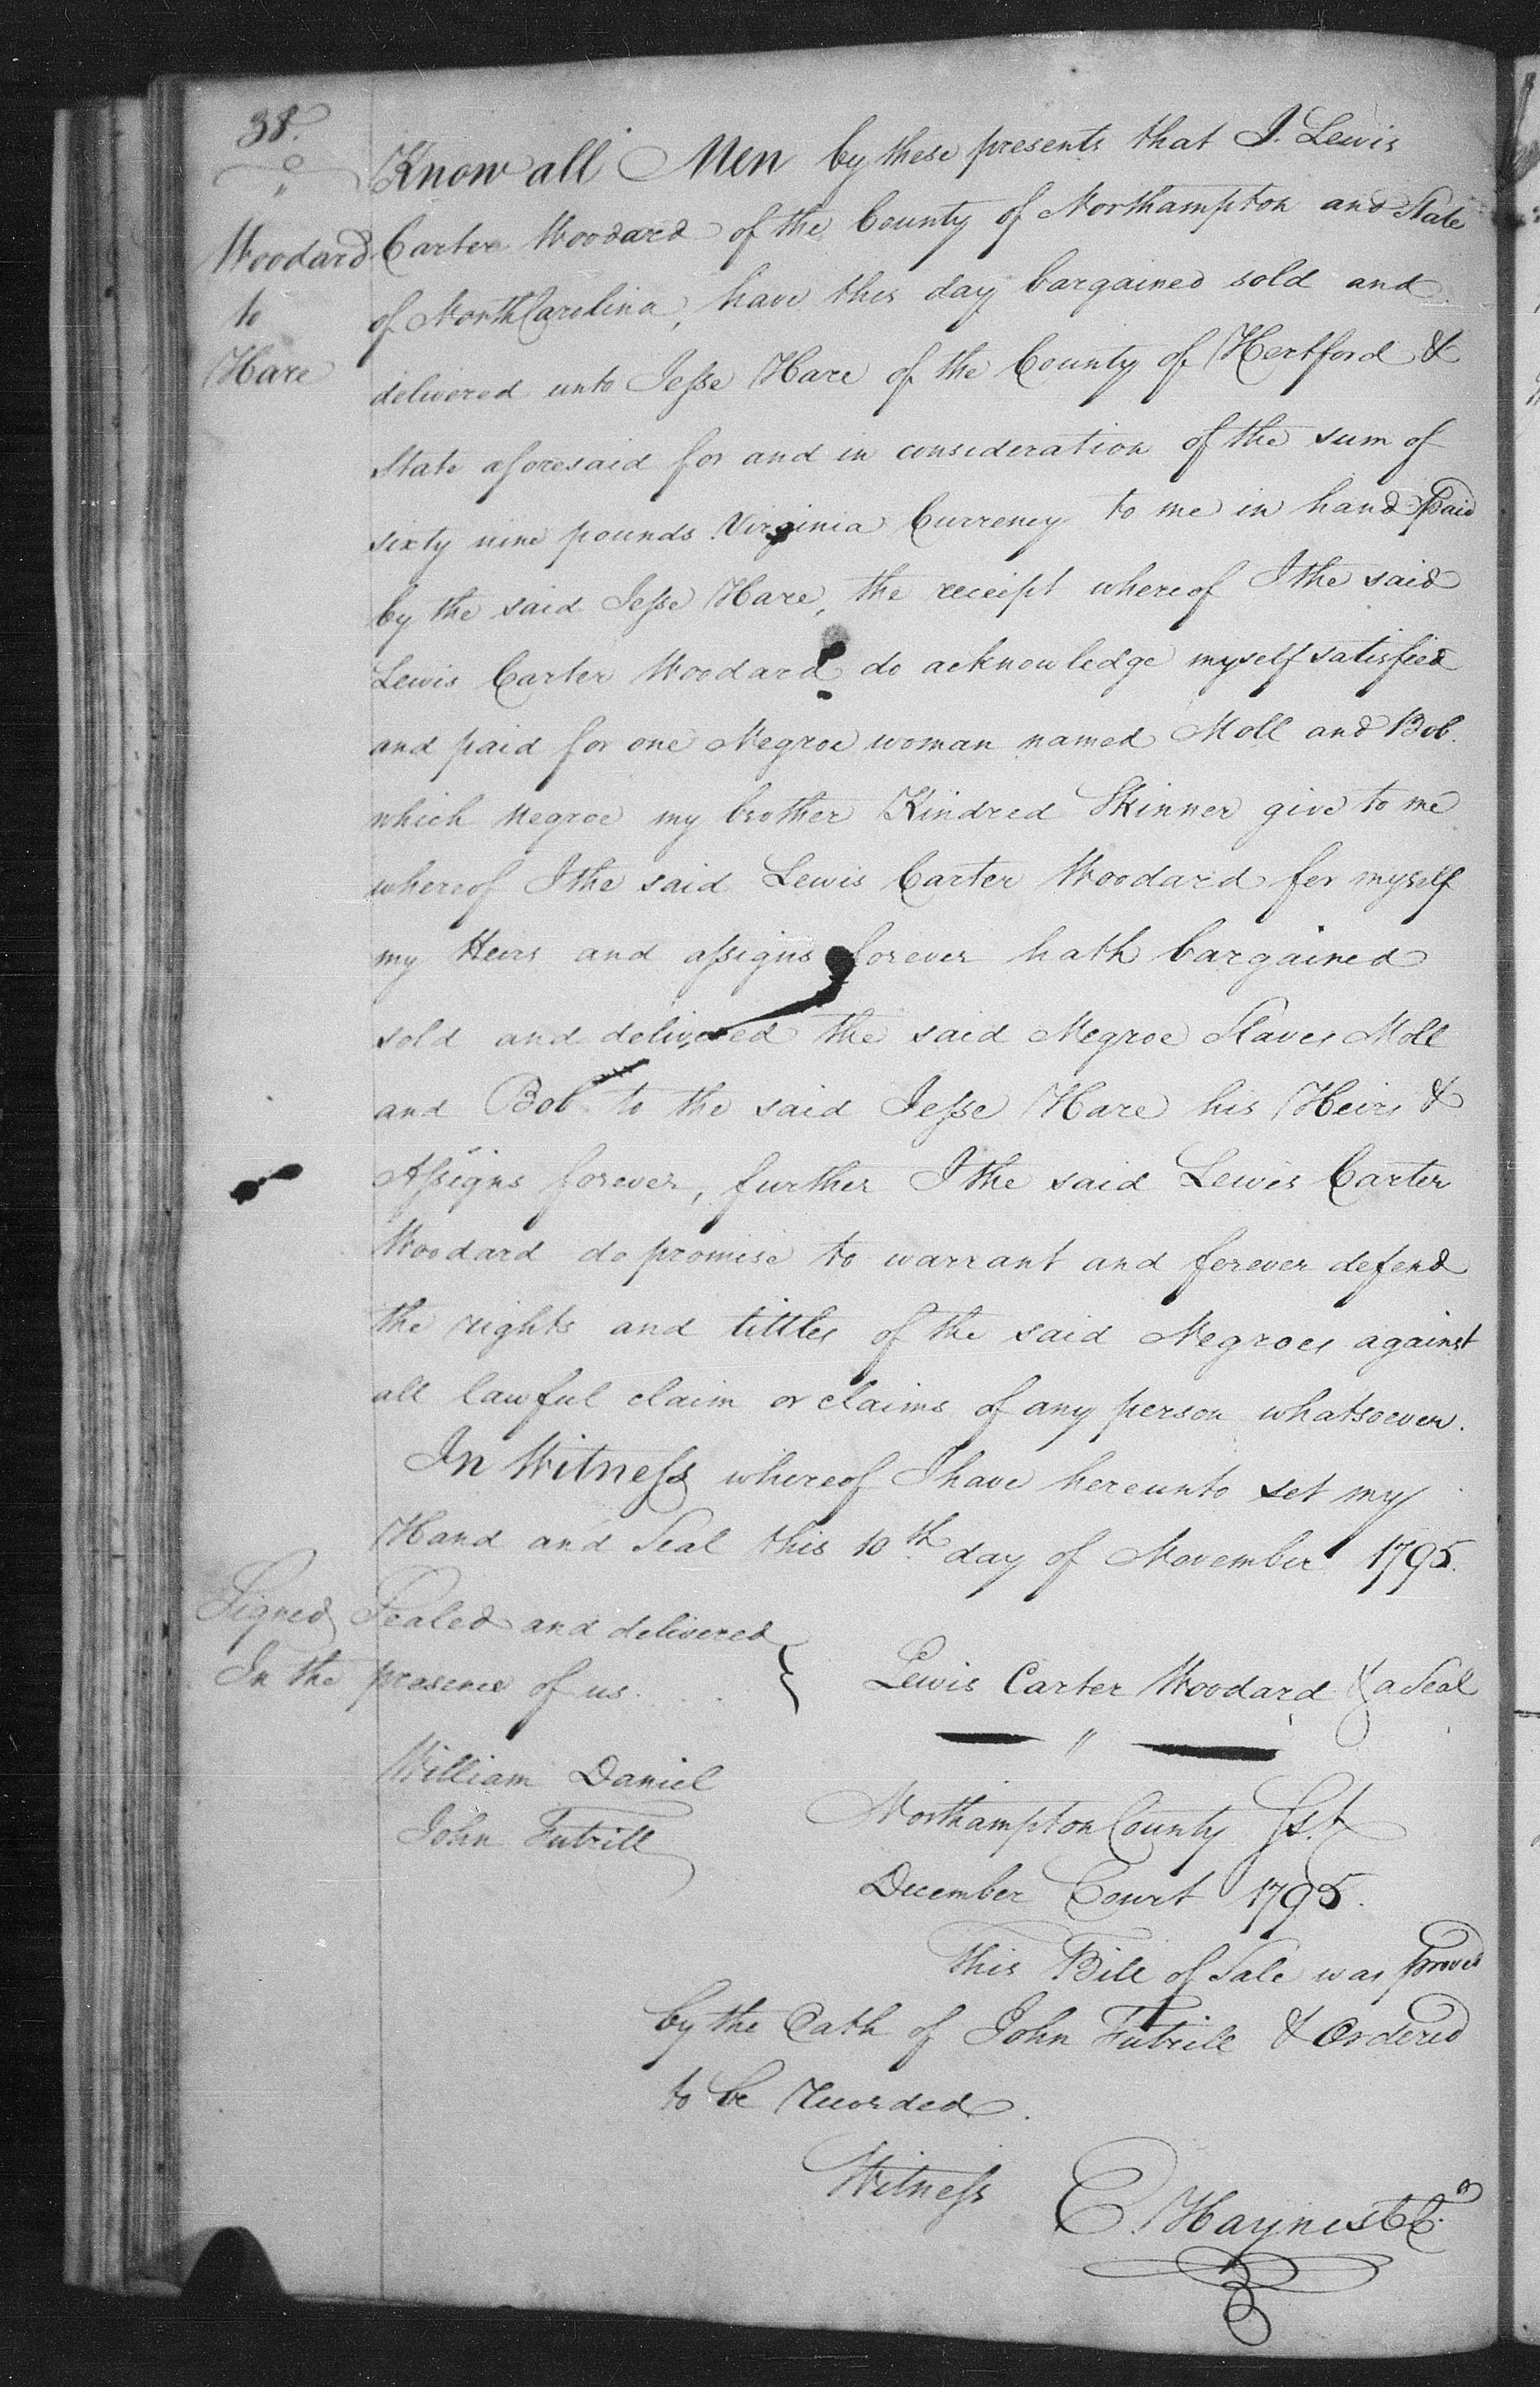 38.
Woodard
to
Hare
Know all Men by these presents that I. Lewis
Carter Woodard of the County of Northampton and State
of North Carolina, have this day bargained sold and
delivered unto Jesse Hare of the County of Hertford &
State aforesaid for and in consideration of the sum of
sixty nine pounds Virginia Currency to me in hand paid
by the said Jesse Hare, the receipt whereof I the said
Lewis Carter Woodard do acknowledge myself satisfied
and paid for one Negroe woman named Moll and Bob.
which negroe my brother Kindred Skinner give to me
whereof I the said Lewis Carter Woodard for myself
my Heirs and assigns forever hath bargained
sold and delivered the said Negroe Slaves Moll
and Bob to the said Jesse Hare his Heirs &
Assigns forever, further I the said Lewis Carter
Woodard do promise to warrant and forever defend
the rights and tittles of the said Negroes against
all lawful claim or claims of any person whatsoever.
In Witness whereof I have hereunto set my
Hand and Seal this 10th day of November 1795.
Signed Sealed and delivered
In the presence of us. . .
Lewis Carter Woodard & a Seal
William Daniel
John Futrill
Northampton County Sst
December Court 1795.
This Bill of Sale was proved
by the Oath of John Futrill & Ordered
to be recorded.
Witness E. Haynes CC